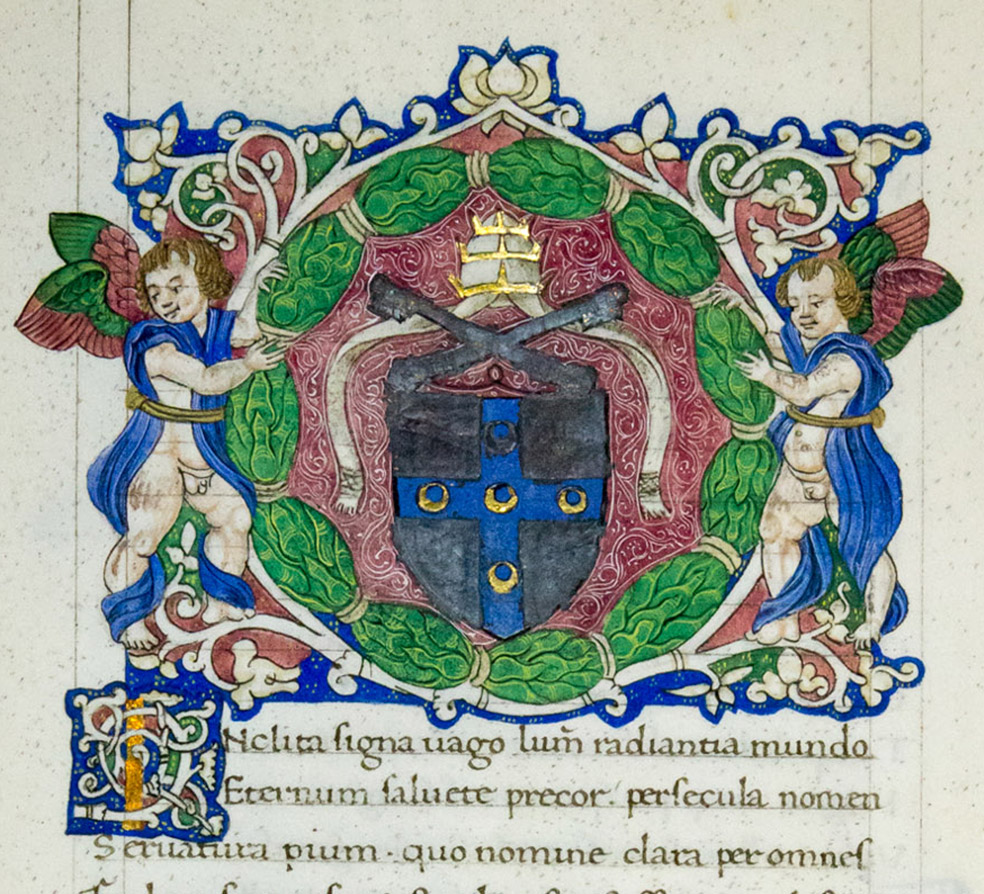 INclita signa uago lum̃ radiantia mundo
Eternum saluete precor. per secula nomen
Seruatura pium · quo nomine clara per omnes